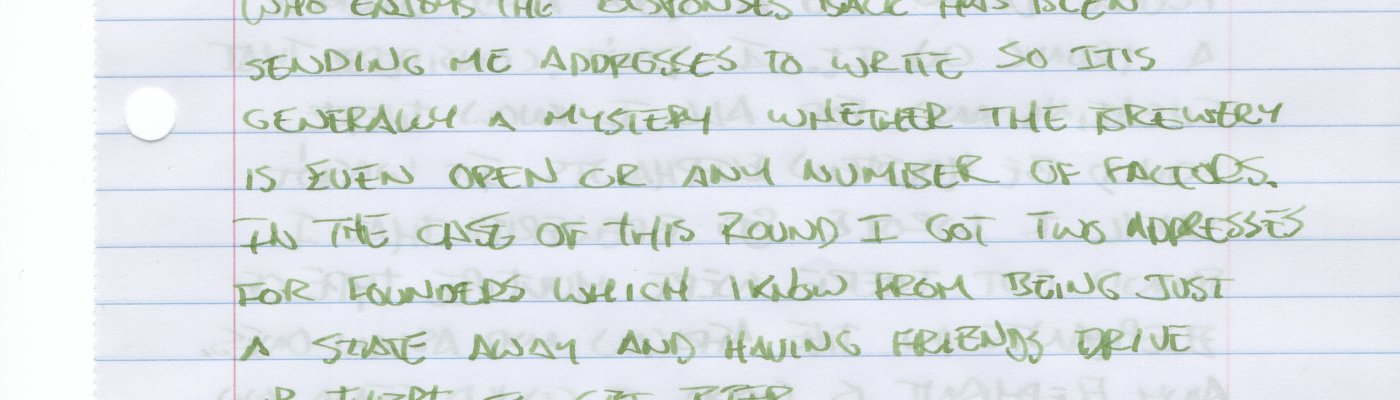 WHO ENJOYS THE RESPONSES BACK HAS BEEN
SENDING ME ADDRESSES TO WRITE SO IT IS
GENERALLY A MYSTERY WHETHER THE BREWERY
IS EVEN OPEN OR ANY NUMBER OF FACTORS.
IN THE CASE OF THIS ROUND I GOT TWO ADDRESSES
FOR FOUNDERS WHICH I KNOW FROM BEING JUST
A STATE AWAY AND HAVING FRIENDS DRIVE
UP THERE TO GET BEER